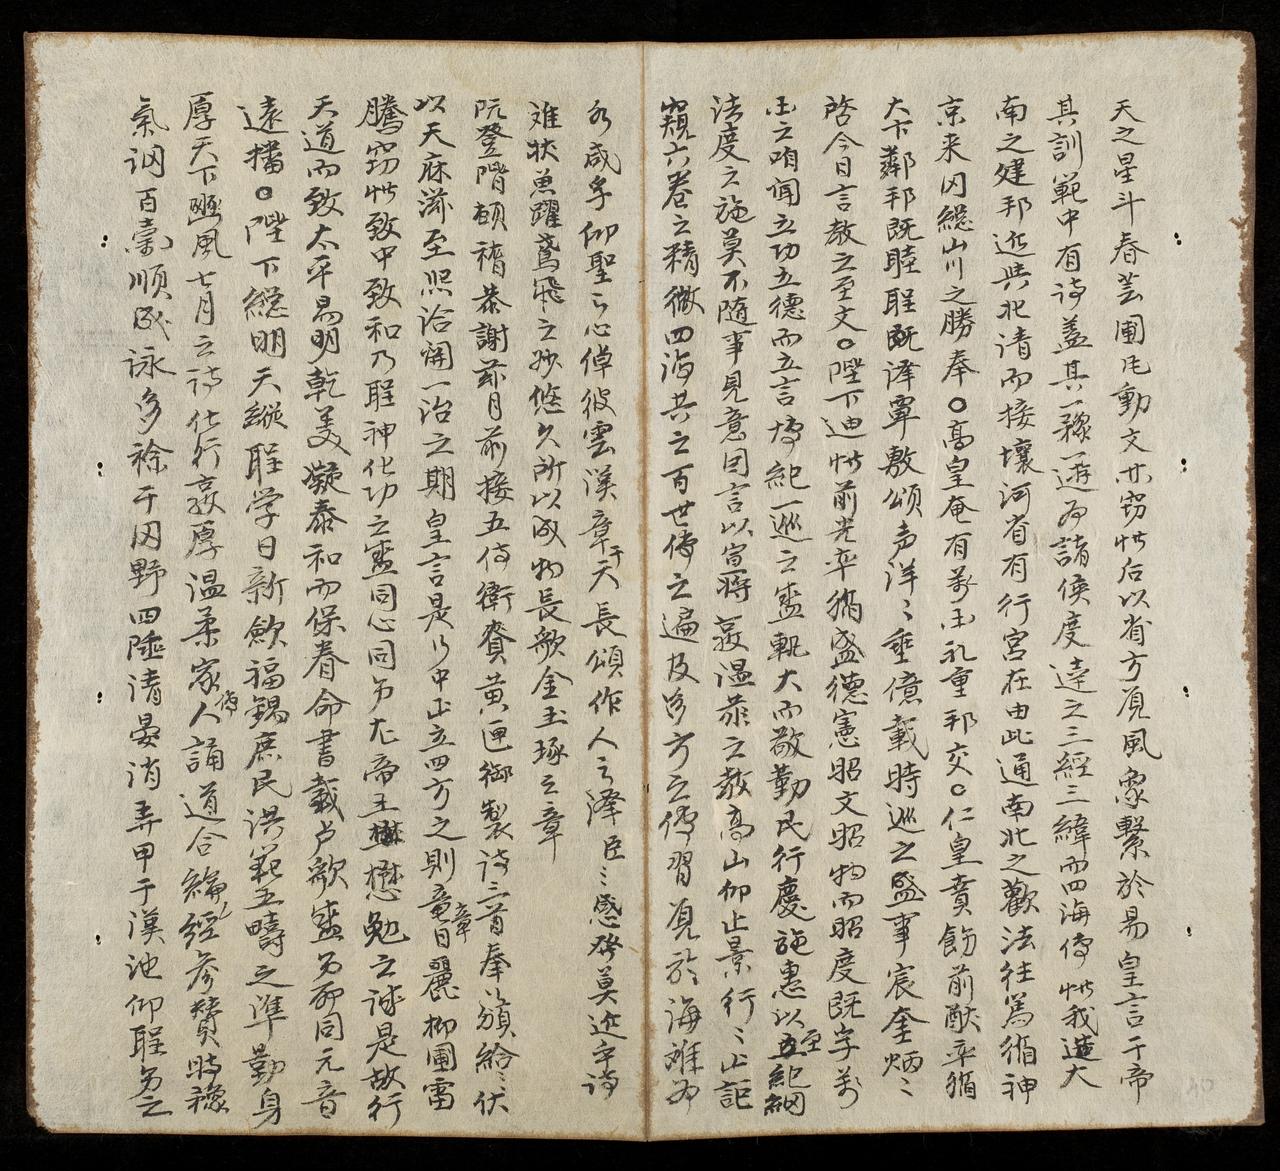 天之星斗春芸圃毛動文亦窃惟后以省方夏風象繫於易皇言于帝
其訓範中有詩盖其一豫一遊為諸侯度達之三經三緯而四海傳惟我造大
南之建邦迩與北清而接壤河省有行宮在由此通南北之歡法往為循神
京来因總山川之勝奉○高皇奄有萬国礼重邦交○仁皇賁飭前猷率循
大卞鄰邦既睦聖既澤覃敷頌声洋〻垂億載時巡之盛事宸奎炳〻
啓今日言教之至文○陛下迪惟前光率循盛德憲昭文昭物而昭度既孚萬
国之咱聞立功立德而立言博紀一巡之盛軌大而敬勤民行慶施惠以至五紀綱
法度之施莫不隨事見意因言以宣將嘉温恭之教高山仰止景行〻止記
窺六卷之精微四海共之百世傳之遍及多方之傳習夏於海难為
水咸孚仰聖之心倬彼雲漢章于天長頌作人之澤臣〻感發莫迩乎詩
难状魚躍鳶飛之妙悠久所以成物長歌金玉琢之章
阮登階頓稽恭謝玆月前接五侍衛賚黄匣御製詩三首奉頒給〻伏
以天庥滋至熙洽開一治之期皇言是行中正立四方之則竜章日麗柳圃雷
騰窃惟致中致和乃聖神化功之盛同心同為尤帝王懋懋勉之誠是故行
天道而致太平易明乾美凝泰和而保眷命書載卢歌盛为而同元音
遠播○陛下總明天縱聖学日新歛福錫庶民洪範五疇之準勤身
厚天下豳風七月之詩化行敦厚温柔家傳人誦道合綸經参贊時豫
氣調百穀順成詠多稌于因野四陲清晏消弄甲于漢池仰聖为之